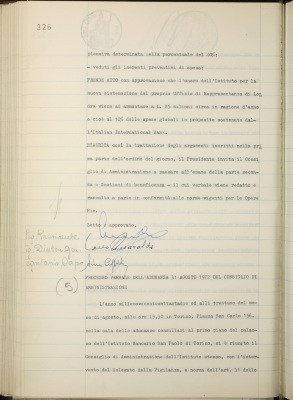 326
plessiva determinata nella percentuale del 40%;
- veduti gli inerenti preventivi di spesa;
PRENDE ATTO con approvazione che l'onere dell'Istituto per la
nuova sistemazione del proprio Ufficio di Rappresentanza di Lon
dra viene ad ammontare a L. 25 milioni circa in ragione d'anno
e cioè al 40% delle spese globali in proposito sostenute dal-
l'Italian International Bank.
ESAURITA così la trattazione degli argomenti iscritti nella pri
ma parte dell'ordine del giorno, il Presidente invita il Consi
glio di Amministrazione a passare all'esame della parte secon-
da - Gestioni di beneficenza - il cui verbale viene redatto e
raccolto a parte in conformità alle norme vigenti per le Opere
Pie.
Letto e approvato.
(5)
PROCESSO VERBALE DELL'ADUNANZA 31 AGOSTO 1972 DEL CONSIGLIO DI
AMMINISTRAZIONE
L'anno millenovecentosettantadue ed alli trentuno del me-
se di agosto, alle ore 15,10 in Torino, Piazza San Carlo 156,
nella sala delle adunanze consiliari al primo piano del palaz-
zo dell'Istituto Bancario San Paolo di Torino, si è riunito il
Consiglio di Amministrazione dell'Istituto stesso, con l'inter-
vento del Delegato della Vigilanza, a norma dell'art. 17 dello